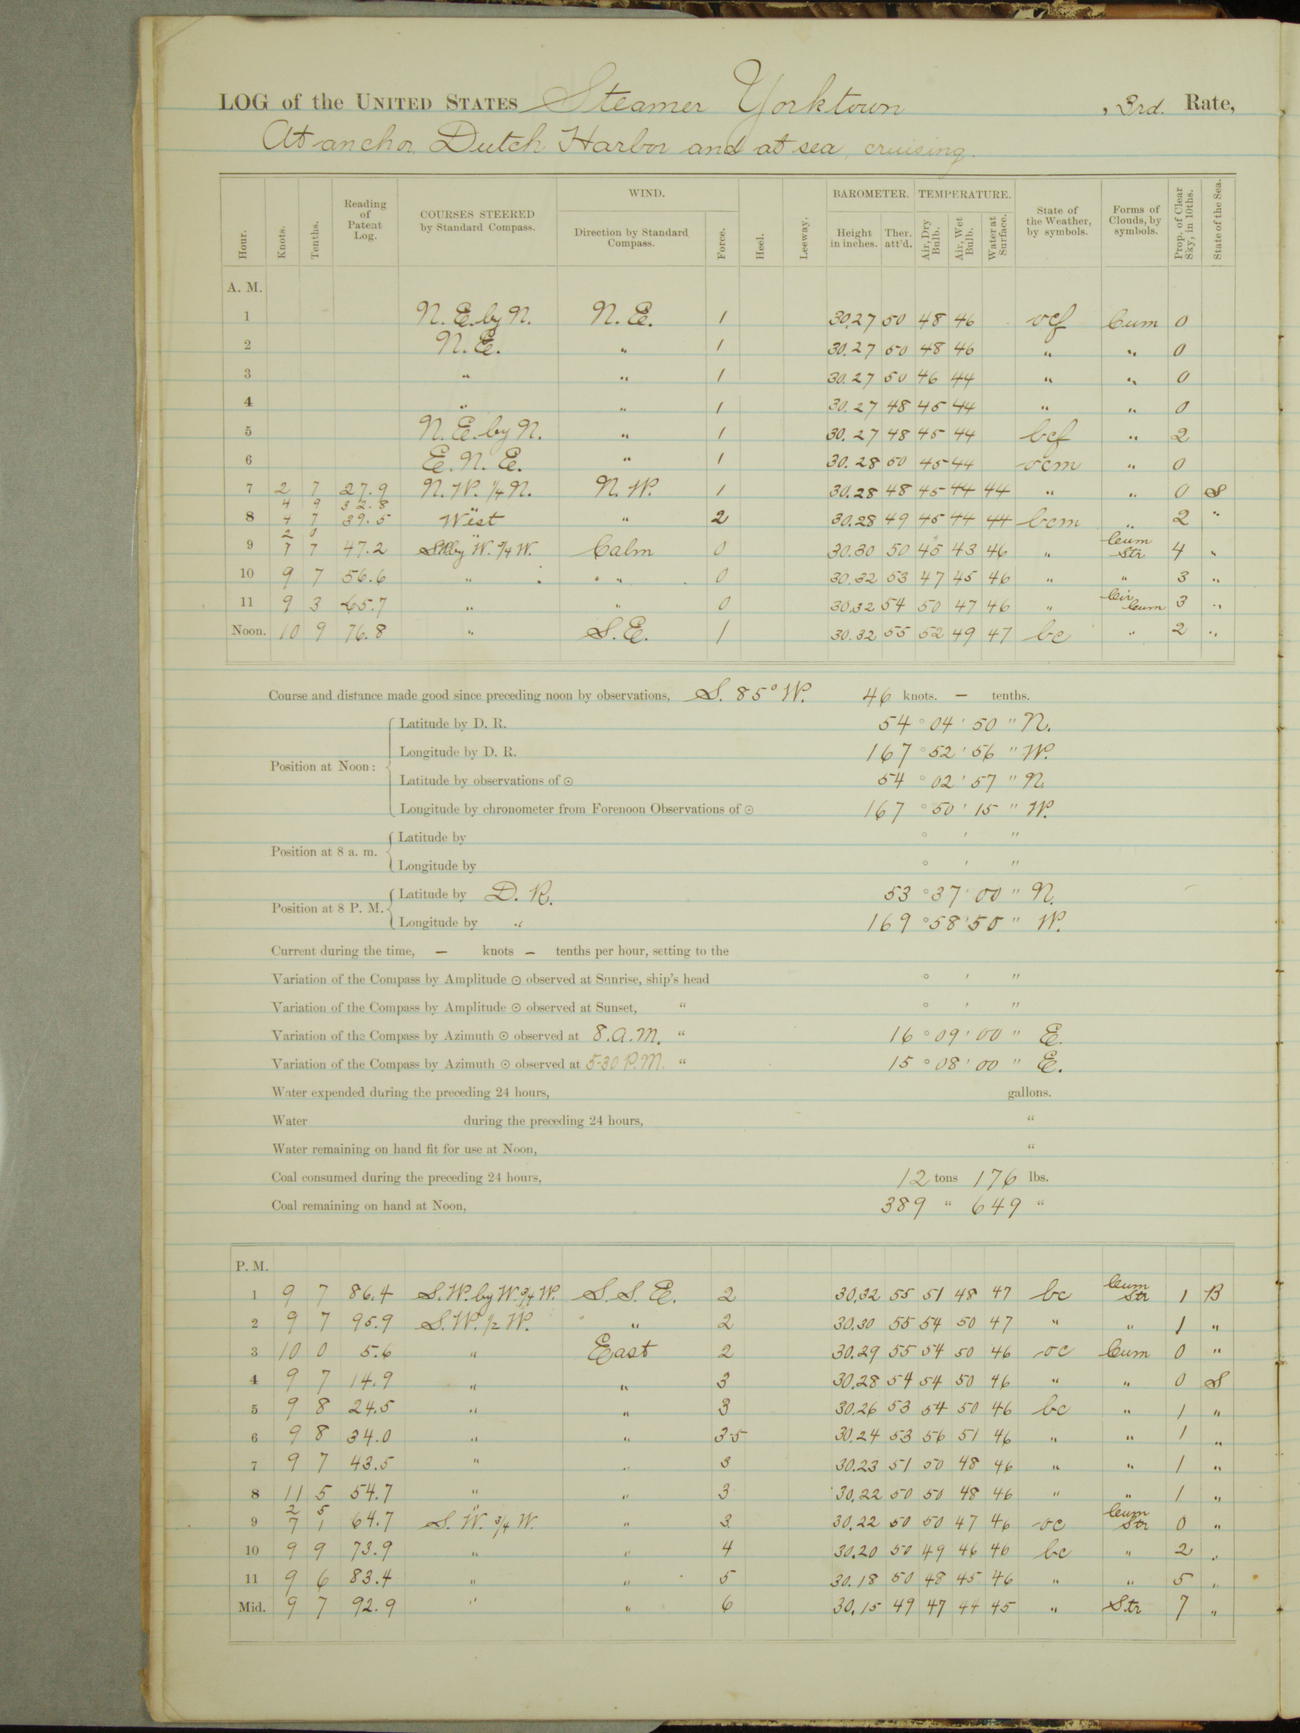 LOG of the UNITED STATES Steamer Yorktown, 3rd. Rate,
At anchor Dutch Harbor and at sea, cruising.
Hour. Knots. Tenths. Reading of Patent Log. COURSES STEERED by Standard Compass. WIND. Direction by Standard Compass. Force. Heel. Leeway. BAROMETER. Height in inches. Ther. att'd. TEMPERATURE. Air, Dry Bulb. Air, Wet Bulb. Water at Surface. State of the Weather, by symbols. Forms of Clouds, by symbols. Prop. of Clear Sky, in 10ths. State of the Sea.
A. M.
1 N. E. by N. N. E. 1 30.27 50 48 46 ocf Cum 0
2 N. E. " 1 30.27 50 48 46 " " 0
3 " " 1 30.27 50 46 44 " " 0
4 " " 1 30.27 48 45 44 " " 0
5 N. E. by N. " 1 30.27 48 45 44 bcf " 2
6 E. N. E. " 1 30.28 50 45 44 ocm " 0
7 2 7 27.9 N. W. 1/4 N. N. W. 1 30.28 48 45 44 44 " " 0 S
4 9 32.8 "
8 4 7 39.5 West " 2 30.28 49 45 44 44 bcm " 2 "
2 0 "
9 7 7 47.2 SW by W. 3/4 W. Calm 0 30.30 50 45 43 46 " Cum Str 4 "
10 9 7 56.6 " " 0 30.32 53 47 45 46 " " 3 "
11 9 3 65.7 " " 0 30.32 54 50 47 46 " Cir Cum 3 "
Noon. 10 9 76.8 " S. E. 1 30.32 55 52 49 47 bc " 2 "
Course and distance made good since preceding noon by observations, S. 85° W. 46 knots. – tenths.
Position at Noon:
Latitude by D. R. 54 ° 04 ' 50 " N.
Longitude by D. R. 167 ° 52 ' 56 " W.
Latitude by observations of ☉ 54 ° 02 ' 57 " N.
Longitude by chronometer from Forenoon Observations of ☉ 167 ° 50 ' 15 " W.
Position at 8 a. m.
Latitude by ° ' "
Longitude by ° ' "
Position at 8 P. M.
Latitude by D. R. 53 ° 37 ' 00 " N.
Longitude by " 169 ° 58 ' 50 " W.
Current during the time, – knots – tenths per hour, setting to the
Variation of the Compass by Amplitude ☉ observed at Sunrise, ship's head ° ' "
Variation of the Compass by Amplitude ☉ observed at Sunset, " ° ' "
Variation of the Compass by Azimuth ☉ observed at 8.a.m. " 16 ° 09 ' 00 " E.
Variation of the Compass by Azimuth ☉ observed at 5-30 P.M. " 15 ° 08 ' 00 " E.
Water expended during the preceding 24 hours, gallons.
Water during the preceding 24 hours, "
Water remaining on hand fit for use at Noon, "
Coal consumed during the preceding 24 hours, 12 tons 176 lbs.
Coal remaining on hand at Noon, 389 " 649 "
P. M.
1 9 7 86.4 S. W. by W. 3/4 W. S. S. E. 2 30.32 55 51 48 47 bc Cum Str 1 B
2 9 7 95.9 S. W. 1/2 W. " 2 30.30 55 54 50 47 " " 1 "
3 10 0 5.6 " East 2 30.29 55 54 50 46 oc Cum 0 "
4 9 7 14.9 " " 3 30.28 54 54 50 46 " " 0 S
5 9 8 24.5 " " 3 30.26 53 54 50 46 bc " 1 "
6 9 8 34.0 " " 3-5 30.24 53 56 51 46 " " 1 "
7 9 7 43.5 " " 3 30.23 51 50 48 46 " " 1 "
8 11 5 54.7 " " 3 30.22 50 50 48 46 " " 1 "
2 5 "
9 7 1 64.7 S. W. 3/4 W. " 3 30.22 50 50 47 46 oc Cum Str 0 "
10 9 9 73.9 " " 4 30.20 50 49 46 46 bc " 2 "
11 9 6 83.4 " " 5 30.18 50 48 45 46 " " 5 "
Mid. 9 7 92.9 " " 6 30.15 49 47 44 45 " Str 7 "